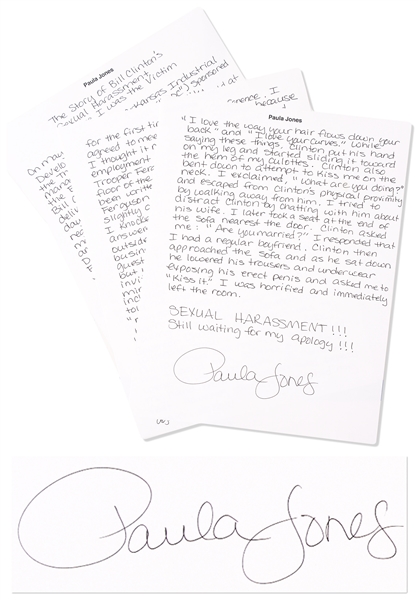 Paula Jones
The Story of Bill Clinton's
Sexual Harassment
I was the Victim
Arkansas Industrial
sponsored
at
Paula Jones
I
because
for the first tim
agreed to mee
I thought it
employment
Trooper Fer
door of the
been
Ferguson
slightly
I knock
answer
outside
busin
guest
but
Paula Jones
"I love the way your hair flows down your
back" and "I love your curves." While
saying these things, Clinton put his hand
on my leg and started sliding it toward
the hem of my culottes. Clinton also
bent down to attempt to kiss me on the
neck. I exclaimed, "What are you doing?"
and escaped from Clinton's physical proximity
by walking away from him. I tried to
distract Clinton by chatting with him about
his wife. I later took a seat at the end of
the sofa nearest the door. Clinton asked
me: "Are you married?" I responded that
I had a regular boyfriend. Clinton then
approached the sofa and as he sat down
he lowered his trousers and underwear
exposing his erect penis and asked me to
"Kiss it." I was horrified and immediately
left the room.
SEXUAL HARASSMENT!!!
Still waiting for my apology!!!
Paula Jones
Paula Jones